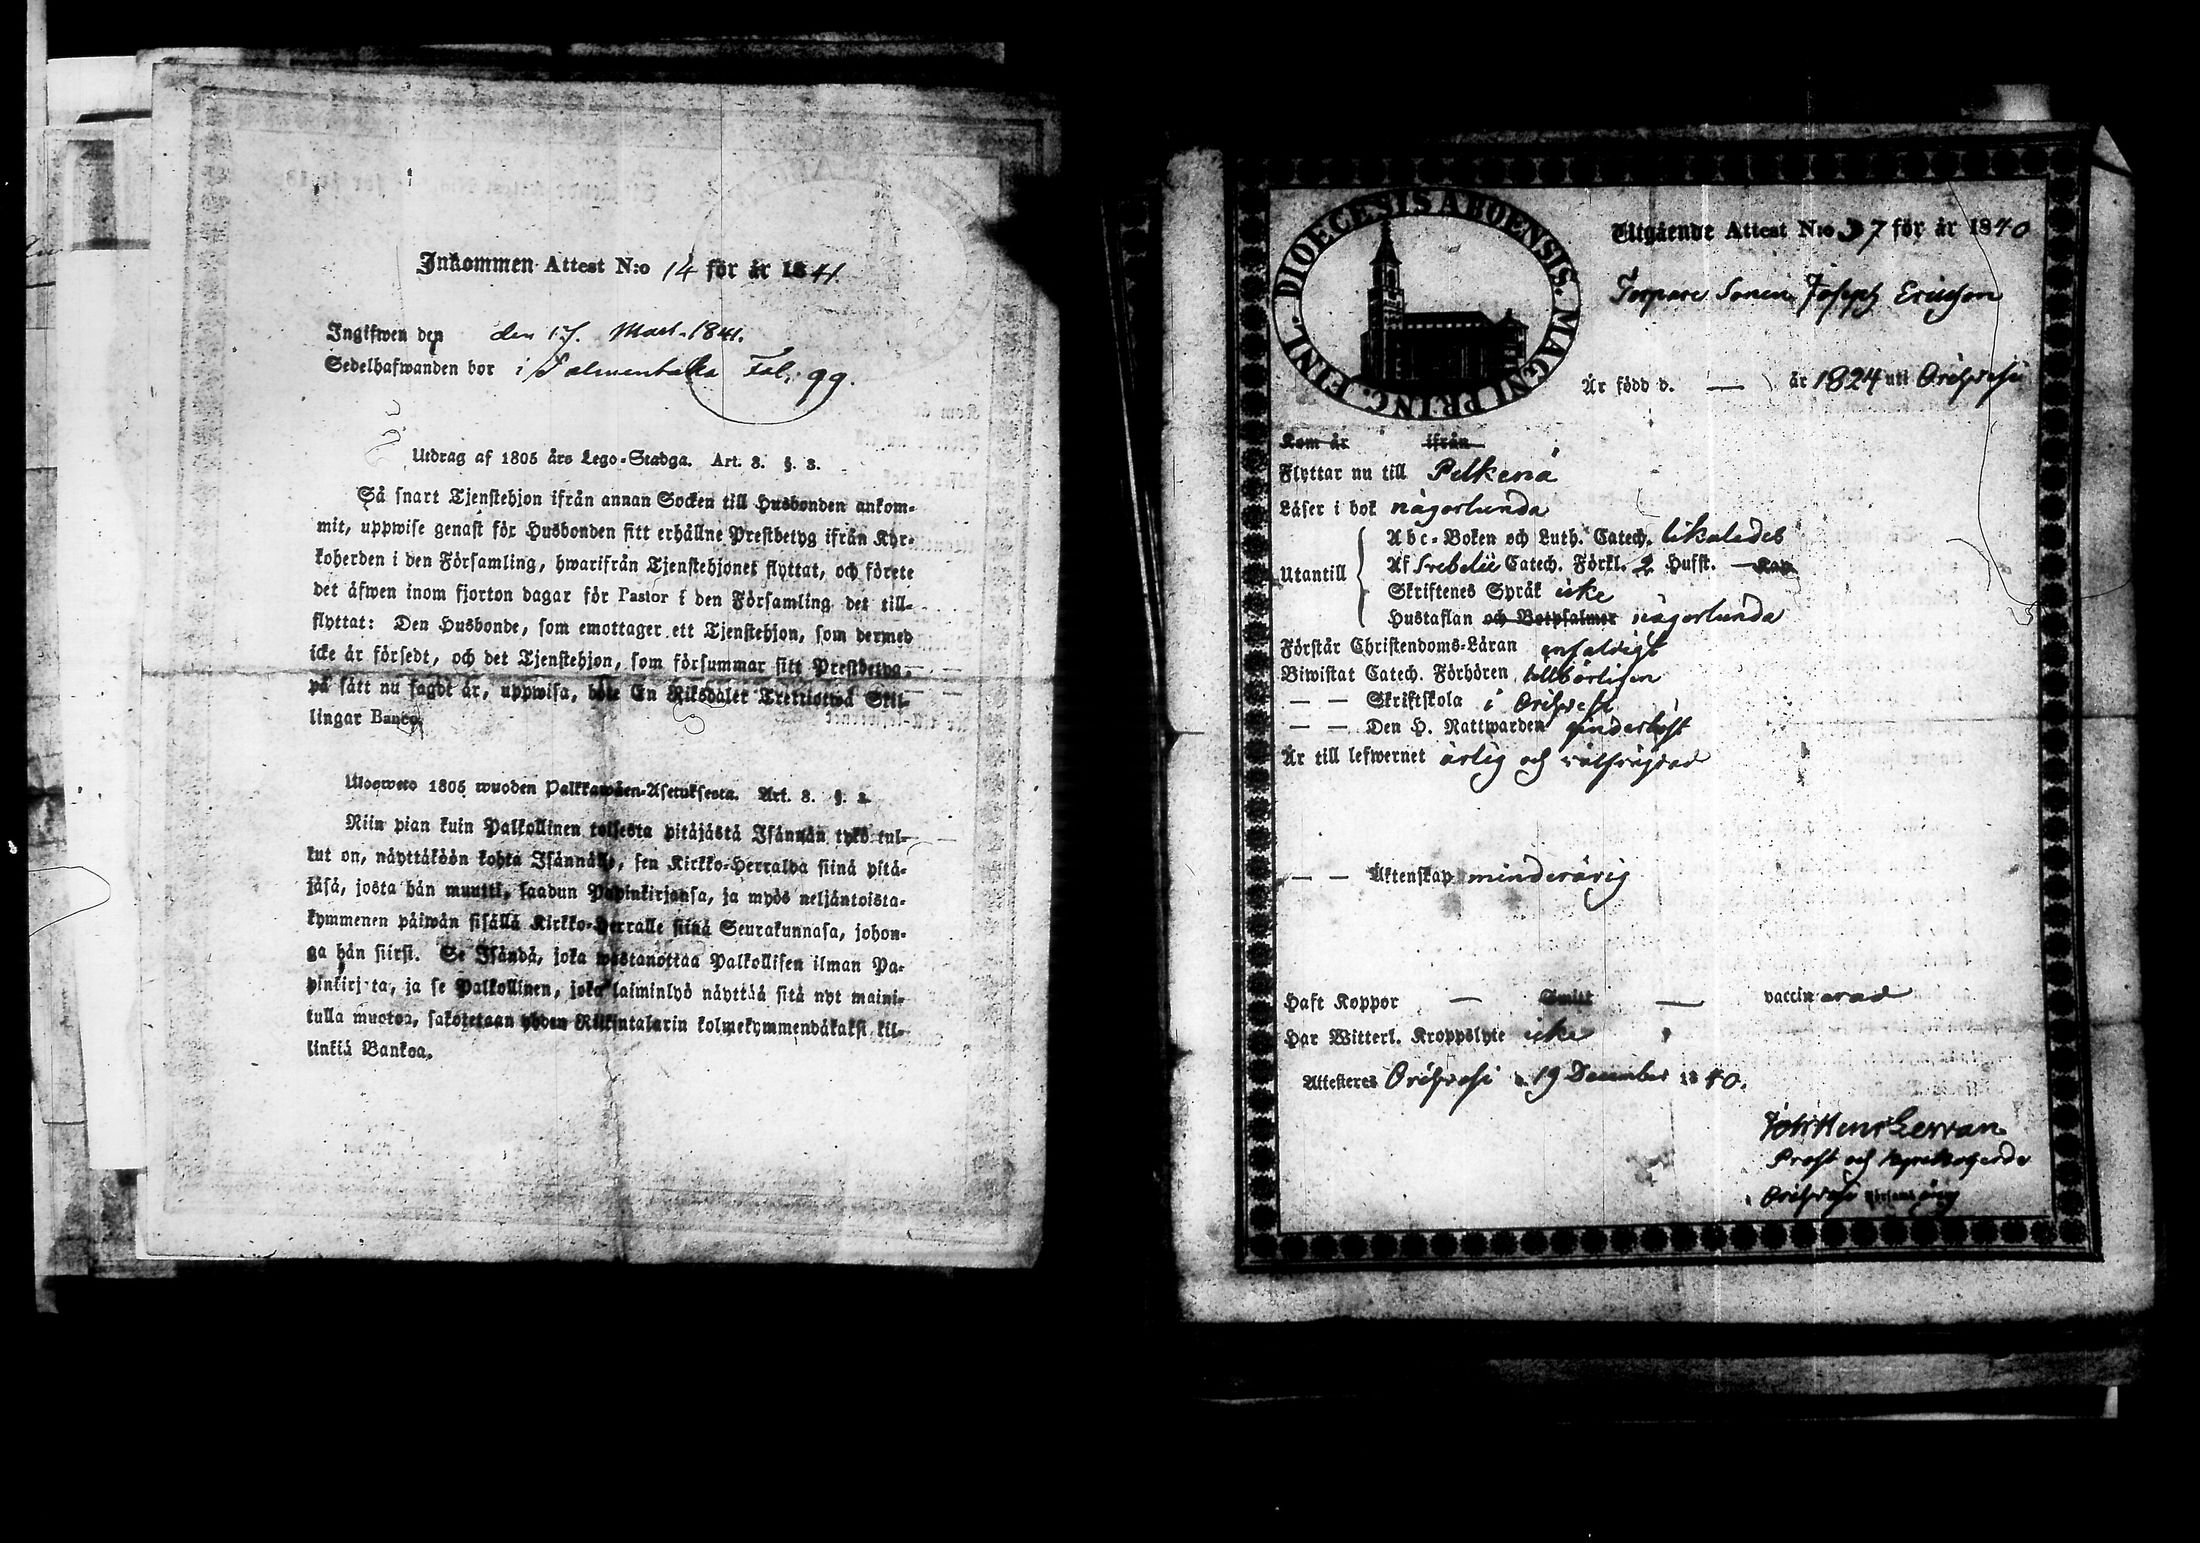 Inkommen Attest N:o 14 för år 1841.
Ingifwen den den 17. Mart. 1841.
Sedelhafwanden bor i Salmentaka Fol. 99.
Utdrag af 1805 års Lego-Stadga. Art. 3. §. 3.
Så snart Tjenstehjon ifrån annan Socken till Husbonden ankom-
mit, uppwise genast för Husbonden sitt erhållne Prestbetyg ifrån Kyr-
koherden i den Församling, hwarifrån Tjenstehjonet flyttat, och förete
det äfwen inom fjorton dagar för Pastor i den Församling det till-
flyttat: Den Husbonde, som emottager ett Tjenstehjon, som dermed
icke är försedt, och det Tjenstehjon, som försummar sitt Prestbetyg,
på sätt nu sagdt är, uppwisa, böte En Riksdaler Trettiotwå Skil-
lingar Banco.
Ulosweto 1805 wuoden Palkkawäen-Asetuksesta. Art. 3. §. 3.
Niin pian kuin Palkollinen toisesta pitäjästä Isännän tykö tul-
lut on, näyttäköön kohta Isännälle, sen Kirkko-Herralda siinä pitä-
jäsä, josta hän muutti, saadun Papinkirjansa, ja myös neljäntoista-
kymmenen päiwän sisällä Kirkko-Herralle siinä Seurakunnasa, johon-
ga hän siirsi. Se Isändä, joka wastanottaa Palkollisen ilman Pa-
pinkirjata, ja se Palkollinen, joka laiminlyö näyttää sitä nyt maini-
tulla muotoa, sakotetaan yhden Riikintalarin kolmekymmendäkaksi kil-
linkiä Bankoa.
DIOECESIS ABOENSIS. MAGNI PRINC. FINL.
Utgående Attest N:o 37 för år 1840
Torpare Sonen Joseph Ericsson
Är född d. — år 1824 uti Orihvesi
Kom år ifrån
Flyttar nu till Pelkene
Läser i bok någorlunda
Utantill
Abc-Boken och Luth. Catech. likaledes
Af Svebelii Catech. Förkl. 2 Hufst. — Kap.
Skriftenes Språk icke
Hustaflan och Botpsalmer någorlunda
Förstår Christendoms-Läran enfaldigt
Biwistat Catech. Förhören tillbörligen
— — Skriftskola i Orihvesi
— — Den H. Nattwarden hinderlöst
Är till lefwernet ärlig och välfrägdad
— — Äktenskap minderårig
Haft Koppor — Smitt — vaccinerad
Har Witterl. Kroppslyte icke
Attesteras Orihvesi d. 19 December 1840.
Prost och Kyrkoherde
Orihvesi Församling